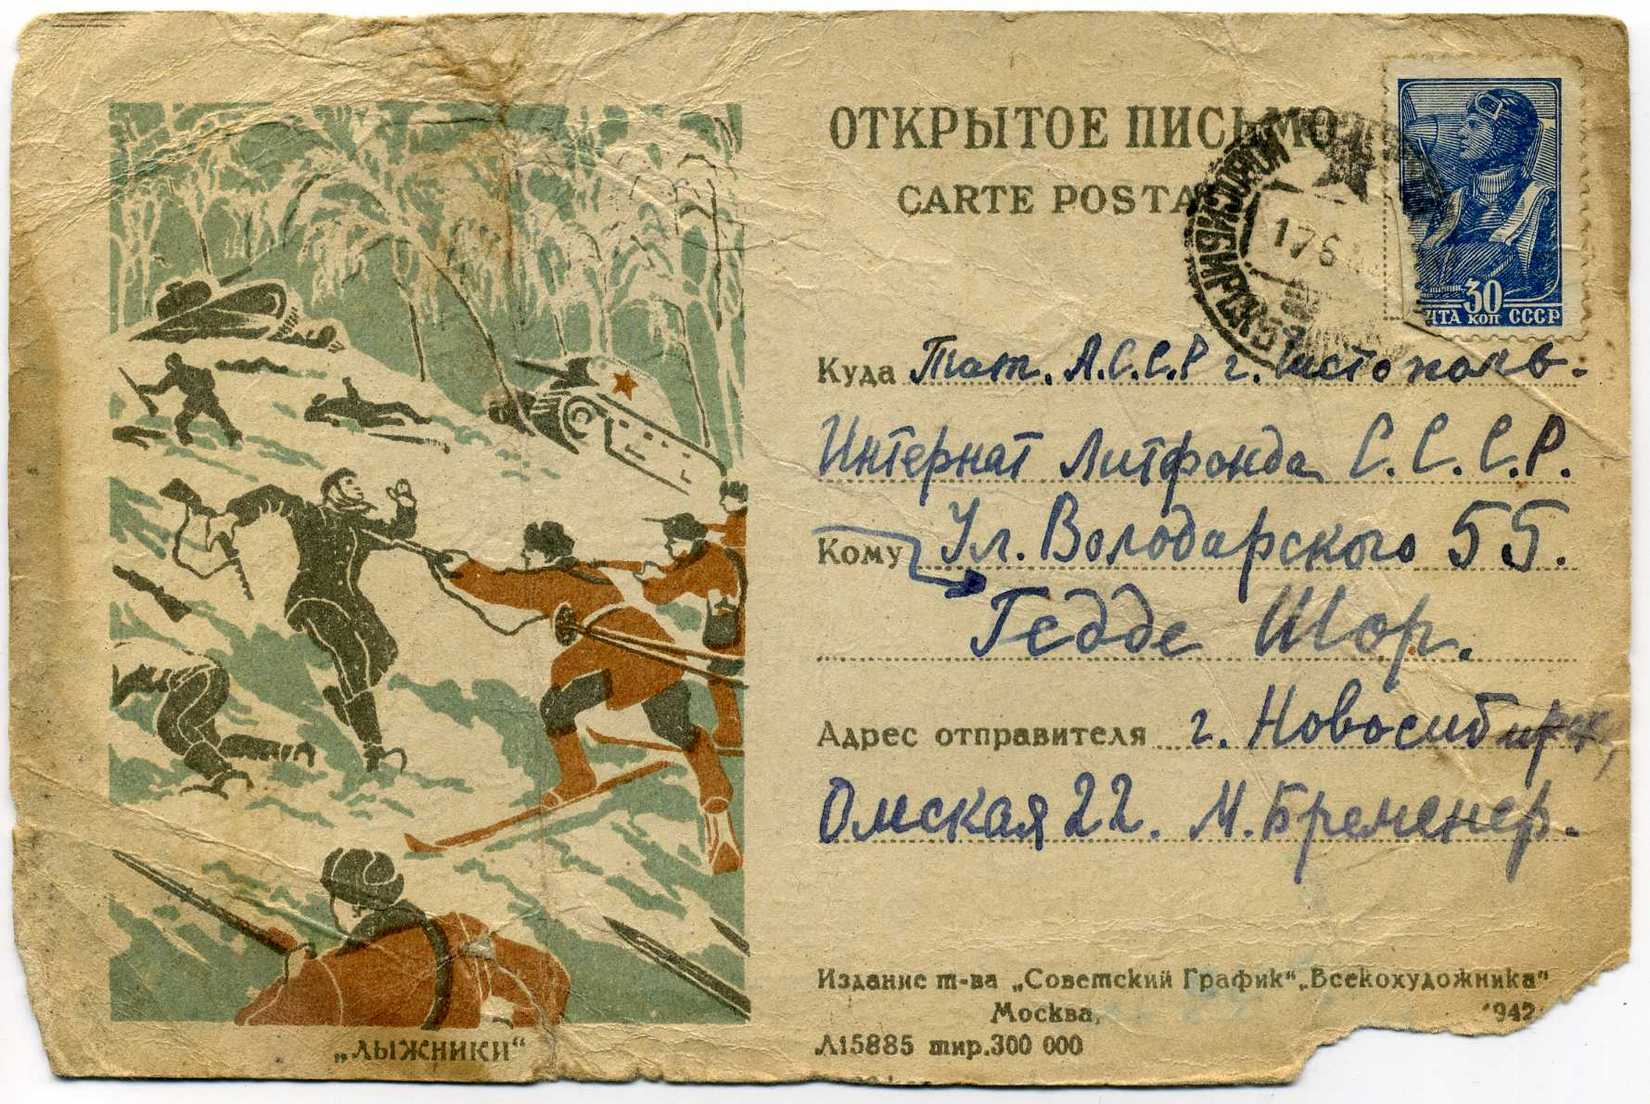 ОТКРЫТОЕ ПИСЬМО
CARTE POSTA
НОВОСИБИРСК
176
30
ЧТА КОП СССР
Куда Тат. А.С.С.Р г. Чистополь-
Интернат Литфонда С.С.С.Р.
Кому Ул. Володарского 55.
Гедде Шор.
Адрес отправителя г. Новосибирск,
Омская 22. М. Бременер.
Издание т-ва „Советский График“ „Всекохудожника“
Москва, 1942
Л15885 тир. 300 000
„ЛЫЖНИКИ“